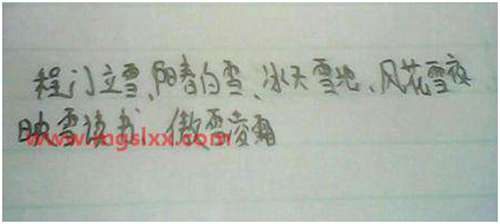 程门立雪、阳春白雪、冰天雪地、风花雪夜
映雪读书、傲雪凌霜
www.mgslxx.com